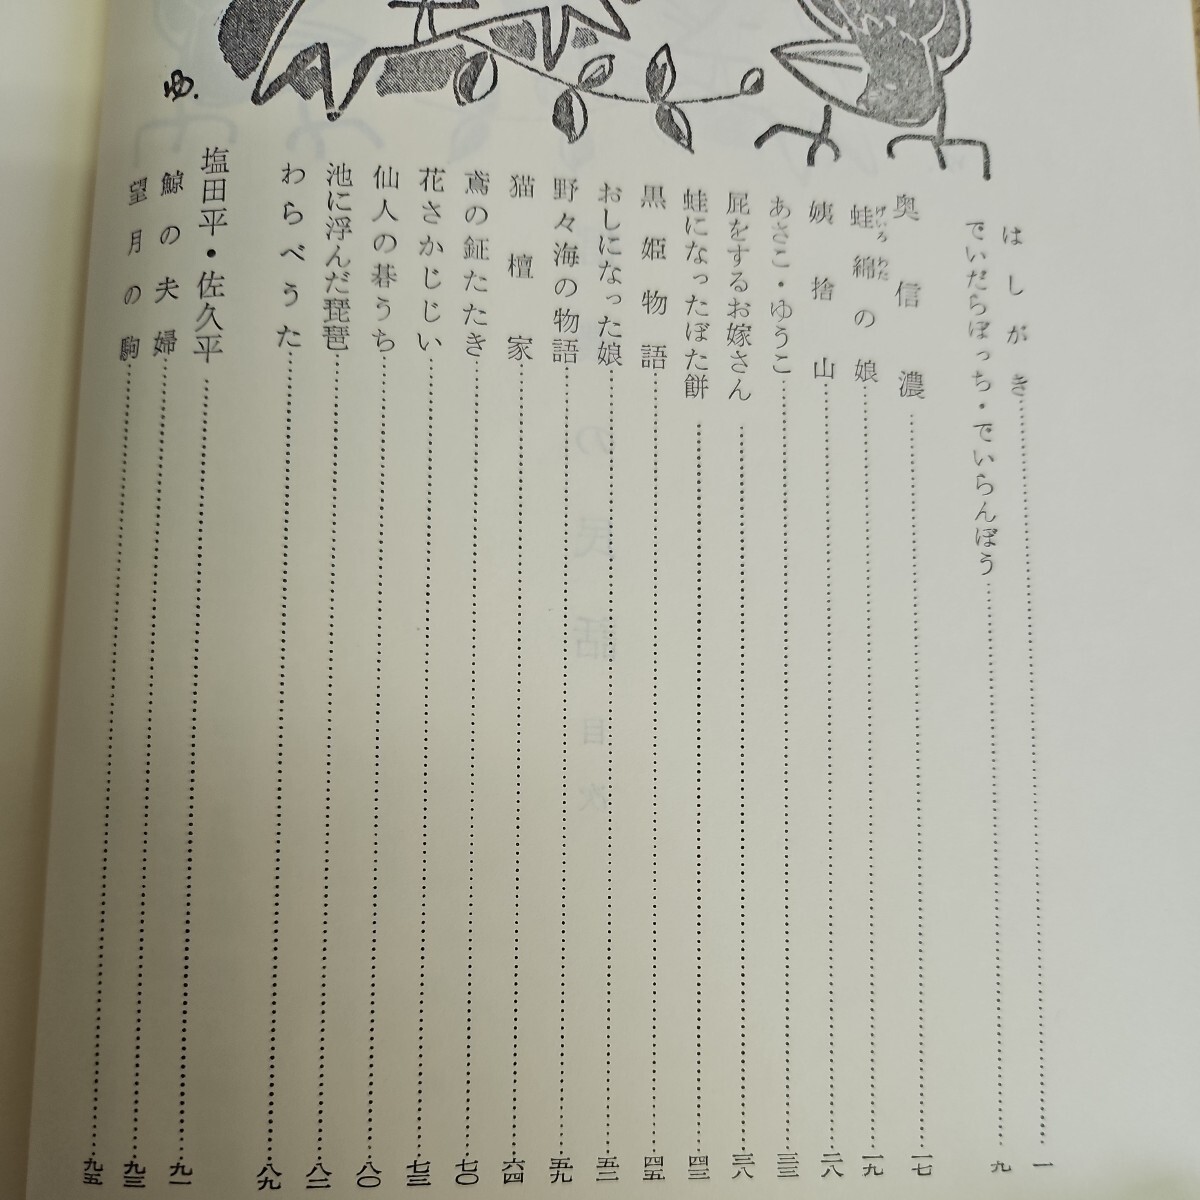 ゆ.
はしがき……一
でいだらぼっち・でいらんぼう……九
奥信濃……一七
蛙綿の娘……一九
げいろ わた
姨捨山……二八
あさこ・ゆうこ……三三
屁をするお嫁さん……三八
蛙になったぼた餅……四三
黒姫物語……四五
おしになった娘……五二
野々海の物語……五九
猫檀家……六四
鳶の鉦たたき……七〇
花さかじじい……七三
仙人の碁うち……八〇
池に浮んだ琵琶……八二
わらべうた……八九
塩田平・佐久平……九一
鯨の夫婦……九三
望月の駒……九五
の民話 目次